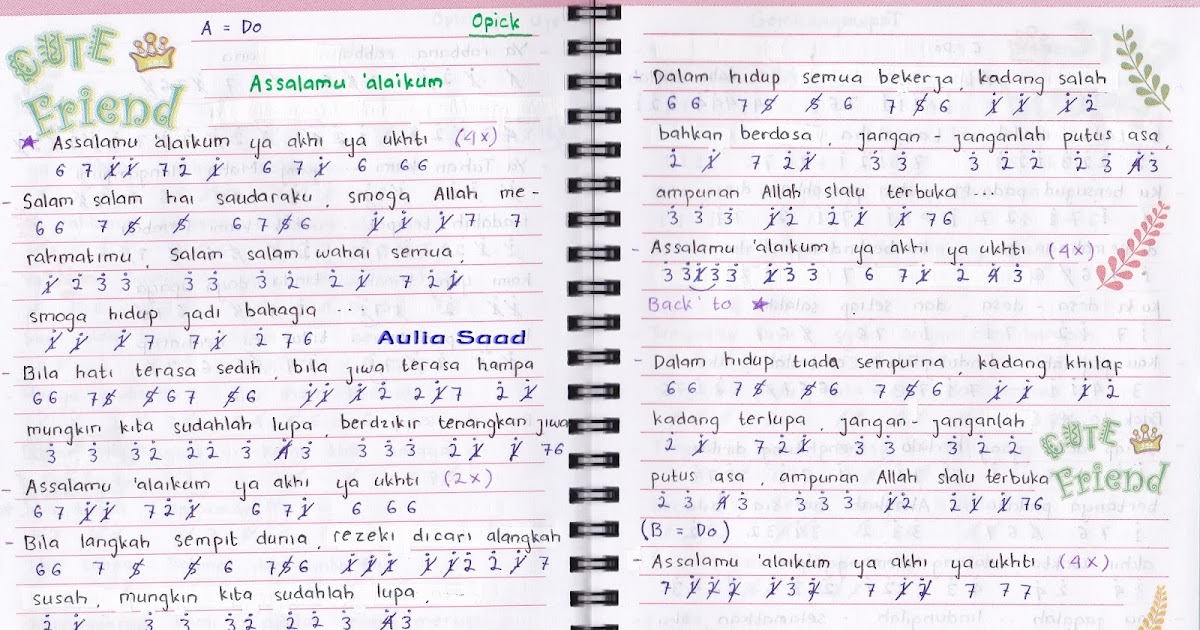 CUTE Friend
A = Do
Opick
Assalamu 'alaikum
★ Assalamu 'alaikum ya akhi ya ukhti (4x)
6 7 1 1 7 2 1 6 7 1 6 6 6
- Salam salam hai saudaraku, smoga Allah me-
6 6 7 5 5 6 7 5 6 1 1 1 7 7
rahmatimu, Salam salam wahai semua,
1 2 3 3 3 3 3 2 2 1 7 2 1
smoga hidup jadi bahagia ...
1 1 1 7 7 1 2 7 6
Aulia Saad
- Bila hati terasa sedih, bila jiwa terasa hampa
6 6 7 5 5 6 7 5 6 1 1 1 2 2 1 7 2 1
mungkin kita sudahlah lupa, berdzikir tenangkan jiwa
3 3 3 2 2 2 3 4 3 3 3 3 2 1 1 7 6
- Assalamu 'alaikum ya akhi ya ukhti (2x)
6 7 1 1 7 2 1 6 7 1 6 6 6
- Bila langkah sempit dunia, rezeki dicari alangkah
6 6 7 5 5 6 7 5 6 1 1 1 1 1 2 2 2 1 7
susah, mungkin kita sudahlah lupa, ...
2 1 3 3 3 2 2 2 3 4 3
- Dalam hidup semua bekerja, kadang salah
6 6 7 5 5 6 7 5 6 1 1 1 2
bahkan berdosa, jangan - janganlah putus asa,
2 1 7 2 1 3 3 3 2 2 2 3 4 3
ampunan Allah slalu terbuka ...
3 3 3 1 2 2 1 1 7 6
- Assalamu 'alaikum ya akhi ya ukhti (4x)
3 3 1 3 3 1 3 3 6 7 1 2 4 3
Back to ★
- Dalam hidup tiada sempurna, kadang khilap
6 6 7 5 5 6 7 5 6 1 1 1 2
kadang terlupa, jangan - janganlah
2 1 7 2 1 3 3 3 2 2
CUTE Friend
putus asa, ampunan Allah slalu terbuka
2 3 4 3 3 3 3 1 2 2 1 1 7 6
(B = Do)
- Assalamu 'alaikum ya akhi ya ukhti (4x)
7 1 2 2 1 3 2 7 1 2 7 7 7